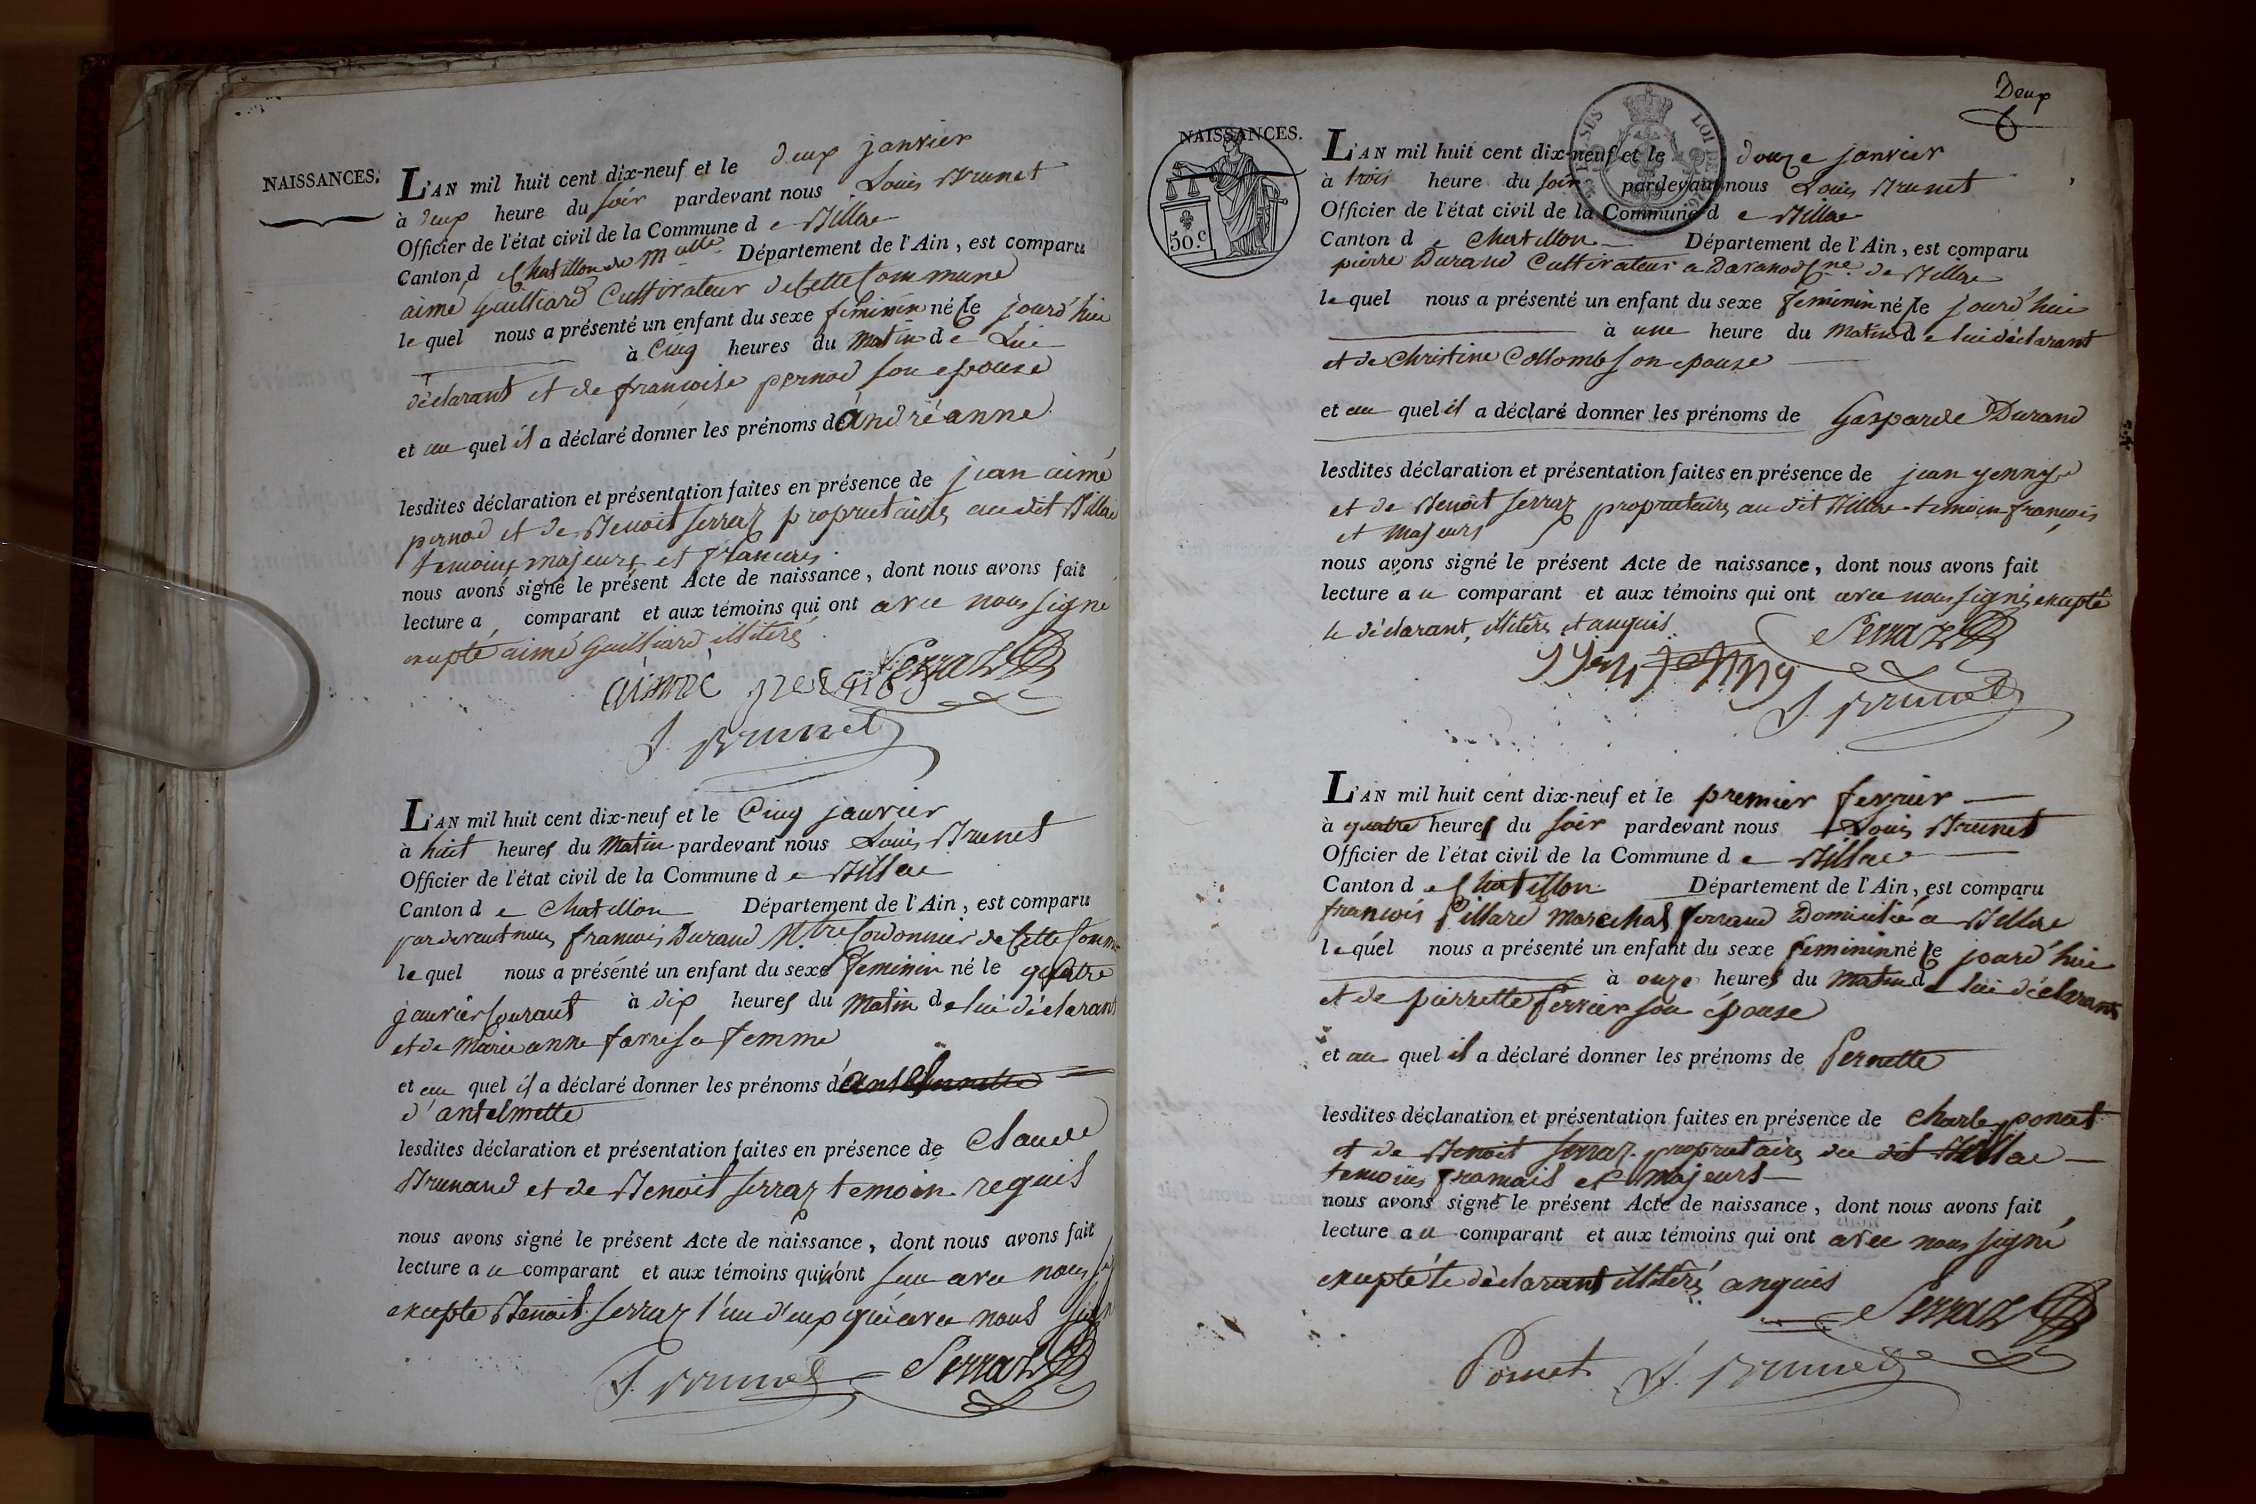 NAISSANCES.
L'AN mil huit cent dix-neuf et le deux janvier
à deux heure du soir pardevant nous Louis Brunet
Officier de l'état civil de la Commune de Billac
Canton de Chatillon de Mlle Département de l'Ain, est comparu
aimé Guilliard Cultivateur de Cette Commune
lequel nous a présenté un enfant du sexe feminin né le jourd'hui
à Cinq heures du matin de Lui
déclarant et de francoise pernod son epouse
et au quel il a déclaré donner les prénoms de andréanne
lesdites déclaration et présentation faites en présence de jean aimé
pernod et de Benoit serraz proprietaires au dit Billac
temoins majeurs et francais
nous avons signé le présent Acte de naissance, dont nous avons fait
lecture a comparant et aux témoins qui ont avec nous signe
excepté aimé Guilliard illiteré
aimé Serraz
J. Brunet
L'AN mil huit cent dix-neuf et le Cinq janvier
à huit heures du Matin pardevant nous Louis Brunet
Officier de l'état civil de la Commune de Billac
Canton de Chatillon Département de l'Ain, est comparu
pardevant nous francois Durand Cordonnier de Cette Comm
lequel nous a présenté un enfant du sexe feminin né le quatre
janvier Courant à dix heures du Matin de lui déclarant
et de Marie anne favre sa femme
et au quel il a déclaré donner les prénoms de
d'antelmette
lesdites déclaration et présentation faites en présence de Claude
Brunand et de Benoit serraz temoin requis
nous avons signé le présent Acte de naissance, dont nous avons fait
lecture au comparant et aux témoins qui n'ont avec nous
excepte Benoit serraz l'un d'eux qui avec nous
J. Brunet Serraz
Deux
NAISSANCES.
50.c
LOI DE
L'AN mil huit cent dix-neuf et le douze janvier
à trois heure du soir pardevant nous Louis Brunet
Officier de l'état civil de la Commune de Billac
Canton de Chatillon Département de l'Ain, est comparu
pierre Durand Cultivateur a Davanod Cne de Billac
lequel nous a présenté un enfant du sexe feminin né le jourd'hui
à une heure du Matin de lui déclarant
et de Christine Collomb son epouse
et au quel il a déclaré donner les prénoms de Gasparde Durand
lesdites déclaration et présentation faites en présence de jean jenny
et de Benoit serraz proprietaires au dit Billac temoin francois
et Majeurs
nous avons signé le présent Acte de naissance, dont nous avons fait
lecture au comparant et aux témoins qui ont avec nous signés excepté
le déclarant, illiteré
Serraz
jenny
J. Brunet
L'AN mil huit cent dix-neuf et le premier fevrier
à quatre heures du soir pardevant nous Louis Brunet
Officier de l'état civil de la Commune de Billac
Canton de Chatillon Département de l'Ain, est comparu
francois Pillard Marechal ferrand Domicilié a Billac
lequel nous a présenté un enfant du sexe feminin né le jourd'hui
à onze heures du Matin de lui déclarant
et de pierrette Perrier son épouse
et au quel il a déclaré donner les prénoms de Pernette
lesdites déclaration et présentation faites en présence de Charles poncet
et de Benoit serraz proprietaires du dit Billac
temoins francais et Majeurs
nous avons signé le présent Acte de naissance, dont nous avons fait
lecture au comparant et aux témoins qui ont avec nous signé
excepté le déclarant illiteré
Serraz
Poncet J. Brunet